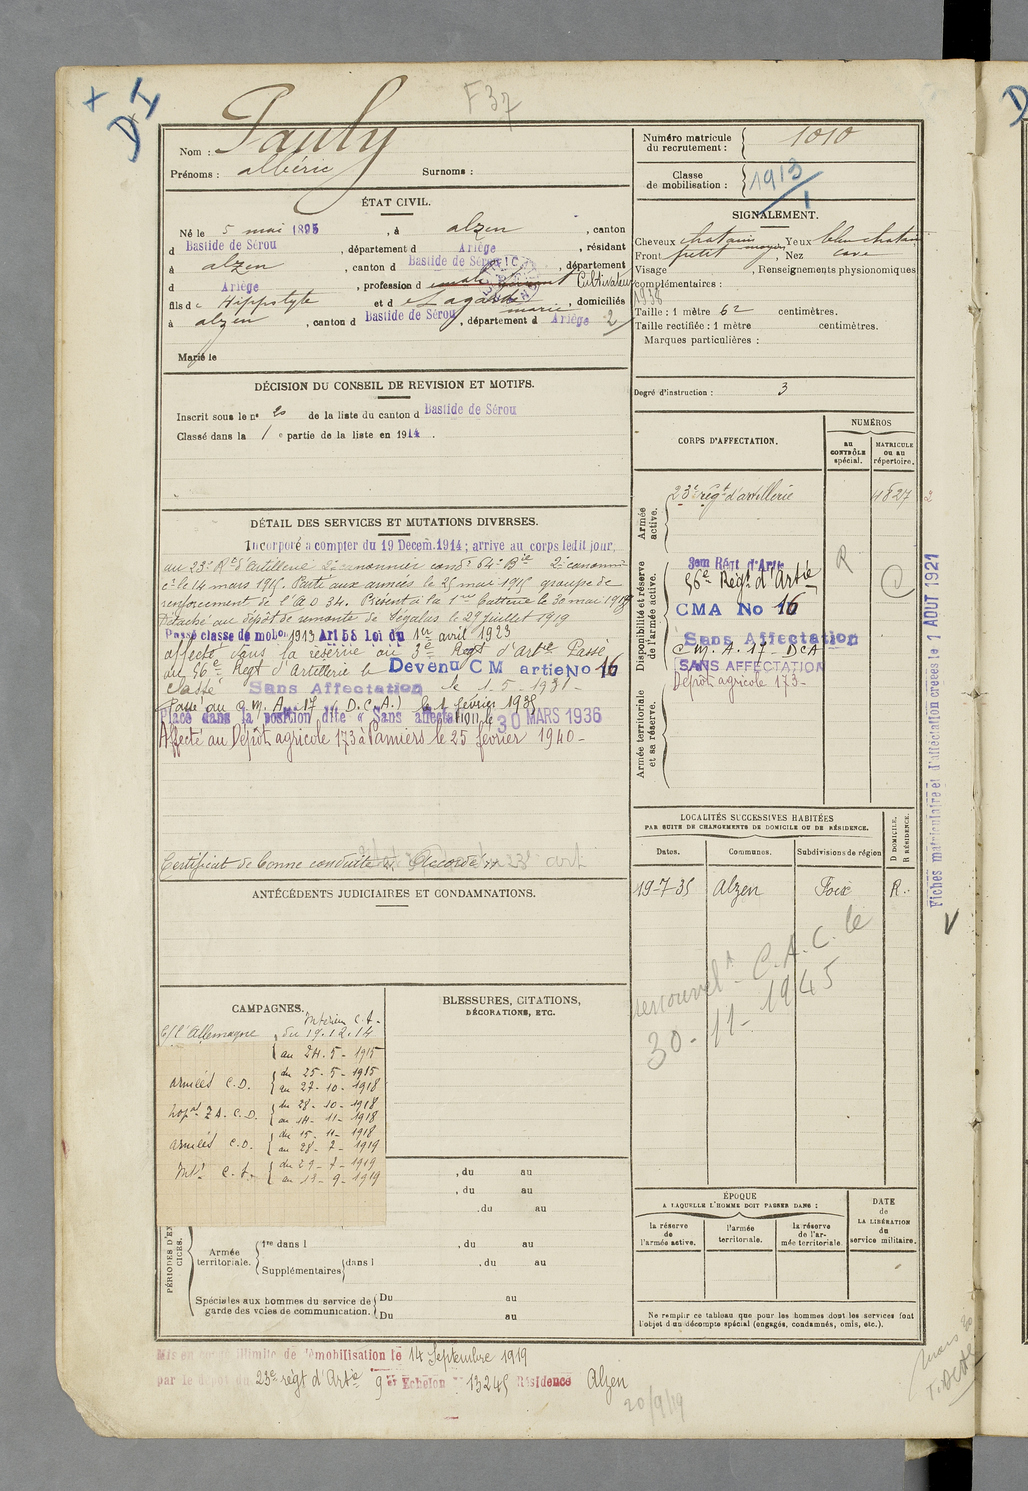 F 37
DI
Nom : Pauly
Prénoms : albéric Surnoms :
Numéro matricule du recrutement : 1010
Classe de mobilisation : 1913/1
ÉTAT CIVIL.
Né le 5 mai 1895, à alzen, canton
d Bastide de Sérou, département d Ariège, résidant
à alzen, canton d Bastide de Sérou, département
d Ariège, profession d Cultivateur
fils de Hippolyte et d Lagarde marie, domiciliés
à alzen, canton d Bastide de Sérou, département d Ariège 2
Marié le
SIGNALEMENT.
Cheveux chatains Yeux bleu chatain
Front petit moyen, Nez cave
Visage , Renseignements physionomiques
complémentaires :
1938
Taille : 1 mètre 62 centimètres.
Taille rectifiée : 1 mètre centimètres.
Marques particulières :
Degré d'instruction : 3
DÉCISION DU CONSEIL DE REVISION ET MOTIFS.
Inscrit sous le nº 20 de la liste du canton d Bastide de Sérou
Classé dans la 1 e partie de la liste en 1914.
DÉTAIL DES SERVICES ET MUTATIONS DIVERSES.
Incorporé à compter du 19 Decem. 1914 ; arrive au corps ledit jour,
au 23e Rt d'artillerie 2e canonnier condr 64e Bie 2e canonnier
le 14 mars 1915. Parti aux armées le 25 mai 1915 groupe de
renforcement de l'A D 34. Présent à la 1re batterie le 30 mai 1915
Détaché au dépôt de remonte de Ségalas le 29 juillet 1919
Passé classe de mobon 1913 Art 58 Loi du 1er avril 1923
affecté dans la réserve au 3e Regt d'artie Passé
au 56e Regt d'Artillerie le Devenu CM artie No 16
Classé Sans Affectation le 1-5-1931-
Passé au C. M. A. 17 (D.C.A.) le 1 février 1938
Placé dans la position dite « Sans affectation le 30 MARS 1936
Affecté au Dépôt agricole 173 à Pamiers le 25 février 1940-
Certificat de bonne conduite Accordé 23e art
ANTÉCÉDENTS JUDICIAIRES ET CONDAMNATIONS.
CORPS D'AFFECTATION.
NUMÉROS
au CONTRÔLE spécial.
MATRICULE ou au répertoire.
Armée active.
23e régt d'artillerie 4827
Disponibilité et réserve de l'armée active.
3em Régt d'Artie
56e Régt d'Artie
CMA No 16
Sans Affectation
C. M. A. 17 - DCA
SANS AFFECTATION
Dépôt agricole 173-
R
Armée territoriale et sa réserve.
Fiches matriculaire et d'affectation créées le 1 AOUT 1921
LOCALITÉS SUCCESSIVES HABITÉES
PAR SUITE DE CHANGEMENTS DE DOMICILE OU DE RÉSIDENCE.
D DOMICILE, R RÉSIDENCE.
Dates. Communes. Subdivisions de région
19-7-35 Alzen Foix R.
C.A.C. le
30-11-1945
CAMPAGNES.
c/ l'Allemagne Intérieur C.S. du 19.12.14
au 24-5-1915
armées C.D. du 25-5-1915
au 27-10-1918
hopal Z A. C.D. du 28-10-1918
au 14-11-1918
armées C.D. du 15-11-1918
au 28-7-1919
Intr C.S. du 29-7-1919
au 13-9-1919
BLESSURES, CITATIONS,
DÉCORATIONS, ETC.
, du au
, du au
, du au
PÉRIODES D'EXERCICES.
Armée territoriale.
1re dans l , du au
Supplémentaires dans l , du au
Spéciales aux hommes du service de garde des voies de communication.
Du au
Du au
ÉPOQUE
A LAQUELLE L'HOMME DOIT PASSER DANS :
la réserve de l'armée active.
l'armée territoriale.
la réserve de l'armée territoriale.
DATE de LA LIBÉRATION du service militaire.
Ne remplir ce tableau que pour les hommes dont les services font l'objet d'un décompte spécial (engagés, condamnés, omis, etc.).
Mis en congé illimité de démobilisation le 14 Septembre 1919
par le dépôt du 23e régt d'Artie 9e Echelon 13245 Résidence Alzen
20/9/19